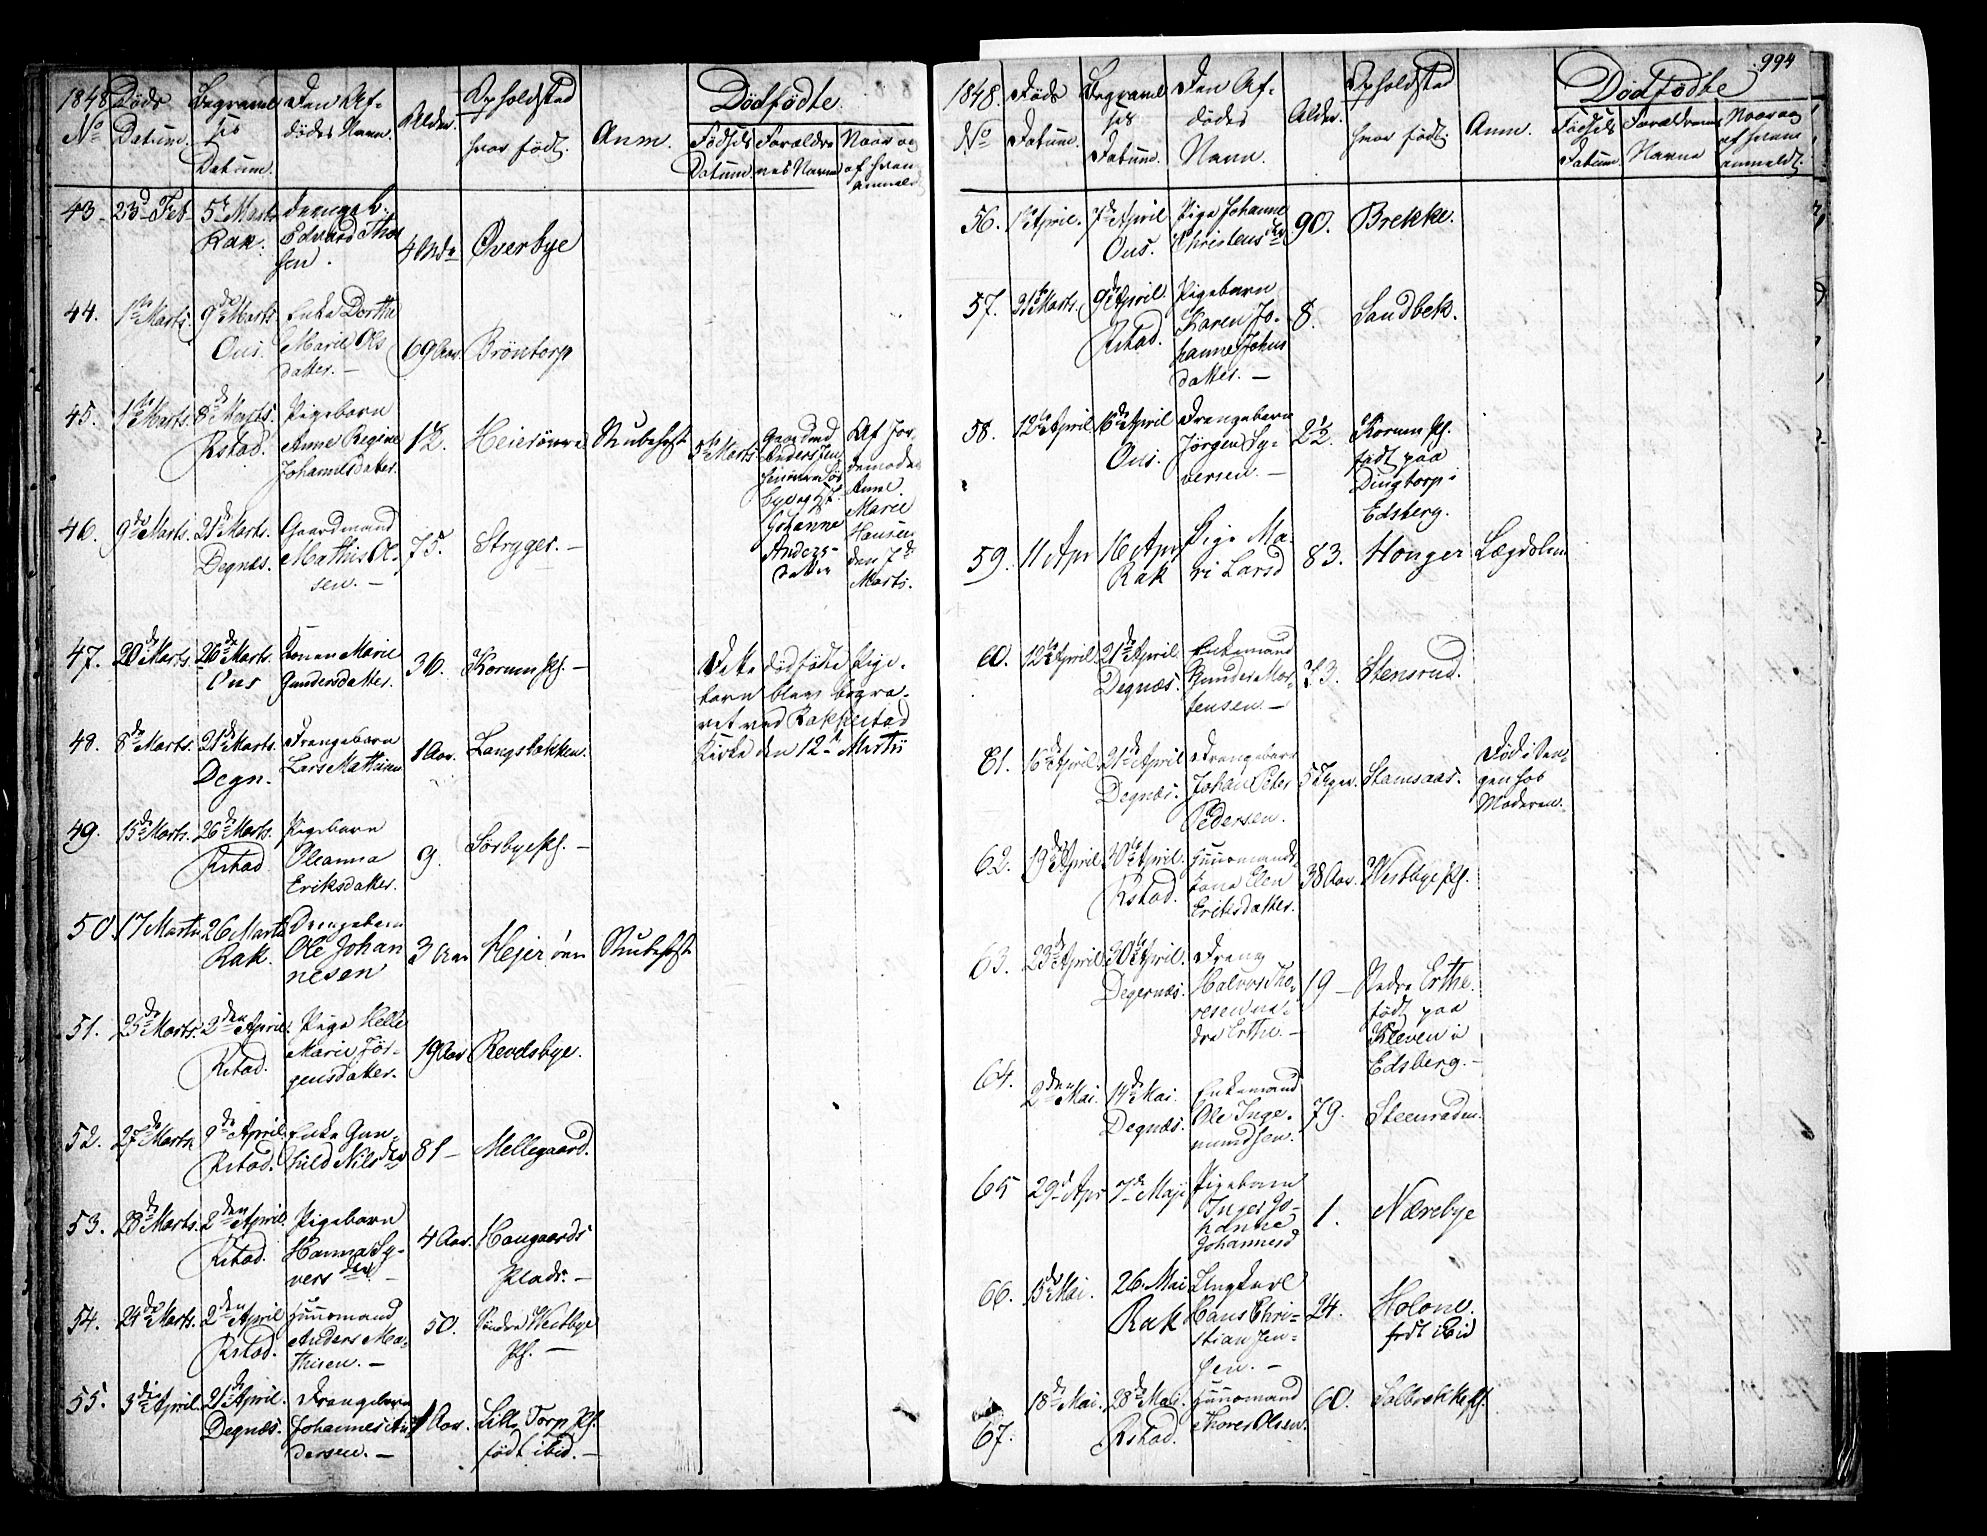 1848
No
Døds
Datum.
Begravel
ses
Datum.
Den Af-
dødes Navn.
Alder.
Opholdsted
hvor født.
Anm.
Dødfødte.
Fødsels
Datum
Forældre
nes Navne
Naar og
af hvem
anmeldt
43. 23d Feb. 5te Marts
Rak.
Drengeb.
Edvard Thor
sen.
4 Mdr
Overbye
44. 1ste Marts 9de Marts
Ous.
Enke Dorthe
Marie Ols
datter. –
69 Aar.
Bröntorp
45. 1ste Marts. 8de Marts.
Rstad.
Pigebarn
Anne Regine
Johannesdatter.
1½.
Heierönne
Strubehoste
5te Marts.
Gaardmd
Anders Jen
sen
Johanne
Anders-
datter
Af Jor
demoder
Anne
Marie
Hansen
den 7de
Marts.
46. 9de Marts. 21de Marts.
Degnæs.
Gaardmand
Mathis Ol-
sen. –
75.
Stryger. –
47. 20de Marts 26de Marts.
Ous
Konen Marie
Gundersdatter.
36.
Korum pl. –
Dette dødfødte Pige-
barn blev begra-
vet ved Rakkestad
Kirke den 12te Martii
48. 8de Marts. 21de Marts.
Degn.
Drengebarn
Lars Mathisen
1 Aar.
Langsbakken.
49. 15de Marts. 26de Marts.
Rstad
Pigebarn
Oleanna
Eriksdatter.
9.
Sörbye pl. –
50. 17 Marts 26 Marts
Rak.
Drengebarn
Ole Johan
nesen
3 Aar
Hejerönn
Strubehoste
51. 25de Marts. 2den April.
Rstad.
Pige Helle
Marie Jör-
gensdatter.
19 Aar
Revdsbye.
52. 27de Marts 9de April.
Rstad.
Enke Gun-
hild Nilsdtr
81 –
Mellegaard.
53. 28de Marts. 2den April.
Rstad.
Pigebarn
Hanna Sy-
versdtr. –
4 Aar.
Haugaards
Plads. –
54. 24de Marts. 2den April
Rstad.
Huusmand
Anders Ma-
thisen. –
50.
Söndre Westbye
Pl. –
55. 3die April. 21de April.
Degnæs.
Drengebarn
Johannes An
dersen. –
1 Aar.
Lille Torp pl.
født ibid. –
994
1848.
No
Døds
Datum.
Begravel
ses
Datum.
Den Af-
dødes
Navn.
Alder.
Opholdsted
hvor født.
Anm.
Dødfødte
Fødsels
Datum.
Forældrenes
Navne
Naar og
af hvem
anmeldt.
56. 1ste April. 7de April
Ous.
Pige Johanne
Christensdtr
90.
Brekke.
57. 31te Marts. 9de April.
Rstad.
Pigebarn
Karen Jo-
hanne Johns
datter. –
8.
Sandbek.
58. 12te April 16de April
Ous.
Drengebarn
Jörgen Sy-
versen. –
2½.
Korum pl.
født paa
Dingtorp i
Edsberg.
59. 11 Apr 16 Apr
Rak
Pige Ma-
ri Larsd
83.
Honger
Lægdslem
60. 12te April. 21de April.
Degnæs.
Enkemand
Gunder Mor-
tensen. –
73.
Stensrud.
61. 16de April. 21de April
Degnæs.
Drengebarn
Johan Peter
Pedersen.
5 Uger.
Stamsaas.
Død i Sen-
gen hos
Moderen.
62. 19de April 30te April.
Rstad.
Huusmands
kone Elen
Eriksdatter.
38 Aar.
Westbye pl.
63. 23de April 30te April.
Degernæs.
Dreng
Halvor Tho-
resen ne-
dre Erthe. –
19 –
Nedre Erthe.
født paa
Kleven i
Edsberg. –
64. 2den Mai. 14de Mai.
Degnæs.
Enkemand
Ole Inge-
mundsen.
79.
Steenraden.
65 29d Apr 7de Maji
Pigebarn
Inger Jo-
hanne
Johannesd
1.
Nærebye
66. 15de Mai. 26. Mai
Rak
Ungkarl
Hans Chri-
stian Jen-
sen. –
24.
Holone.
født ibid
67. 18de Mai. 28de Mai.
Rstad.
Huusmand
Thorer Olsen.
60.
Solbrekke pl.